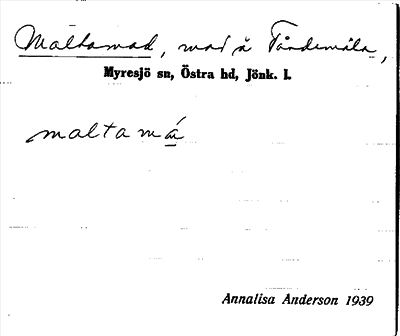 Maltamad, mad å Tåndemåla,
Myresjö sn, Östra hd, Jönk. l.
maltamá
Annalisa Anderson 1939